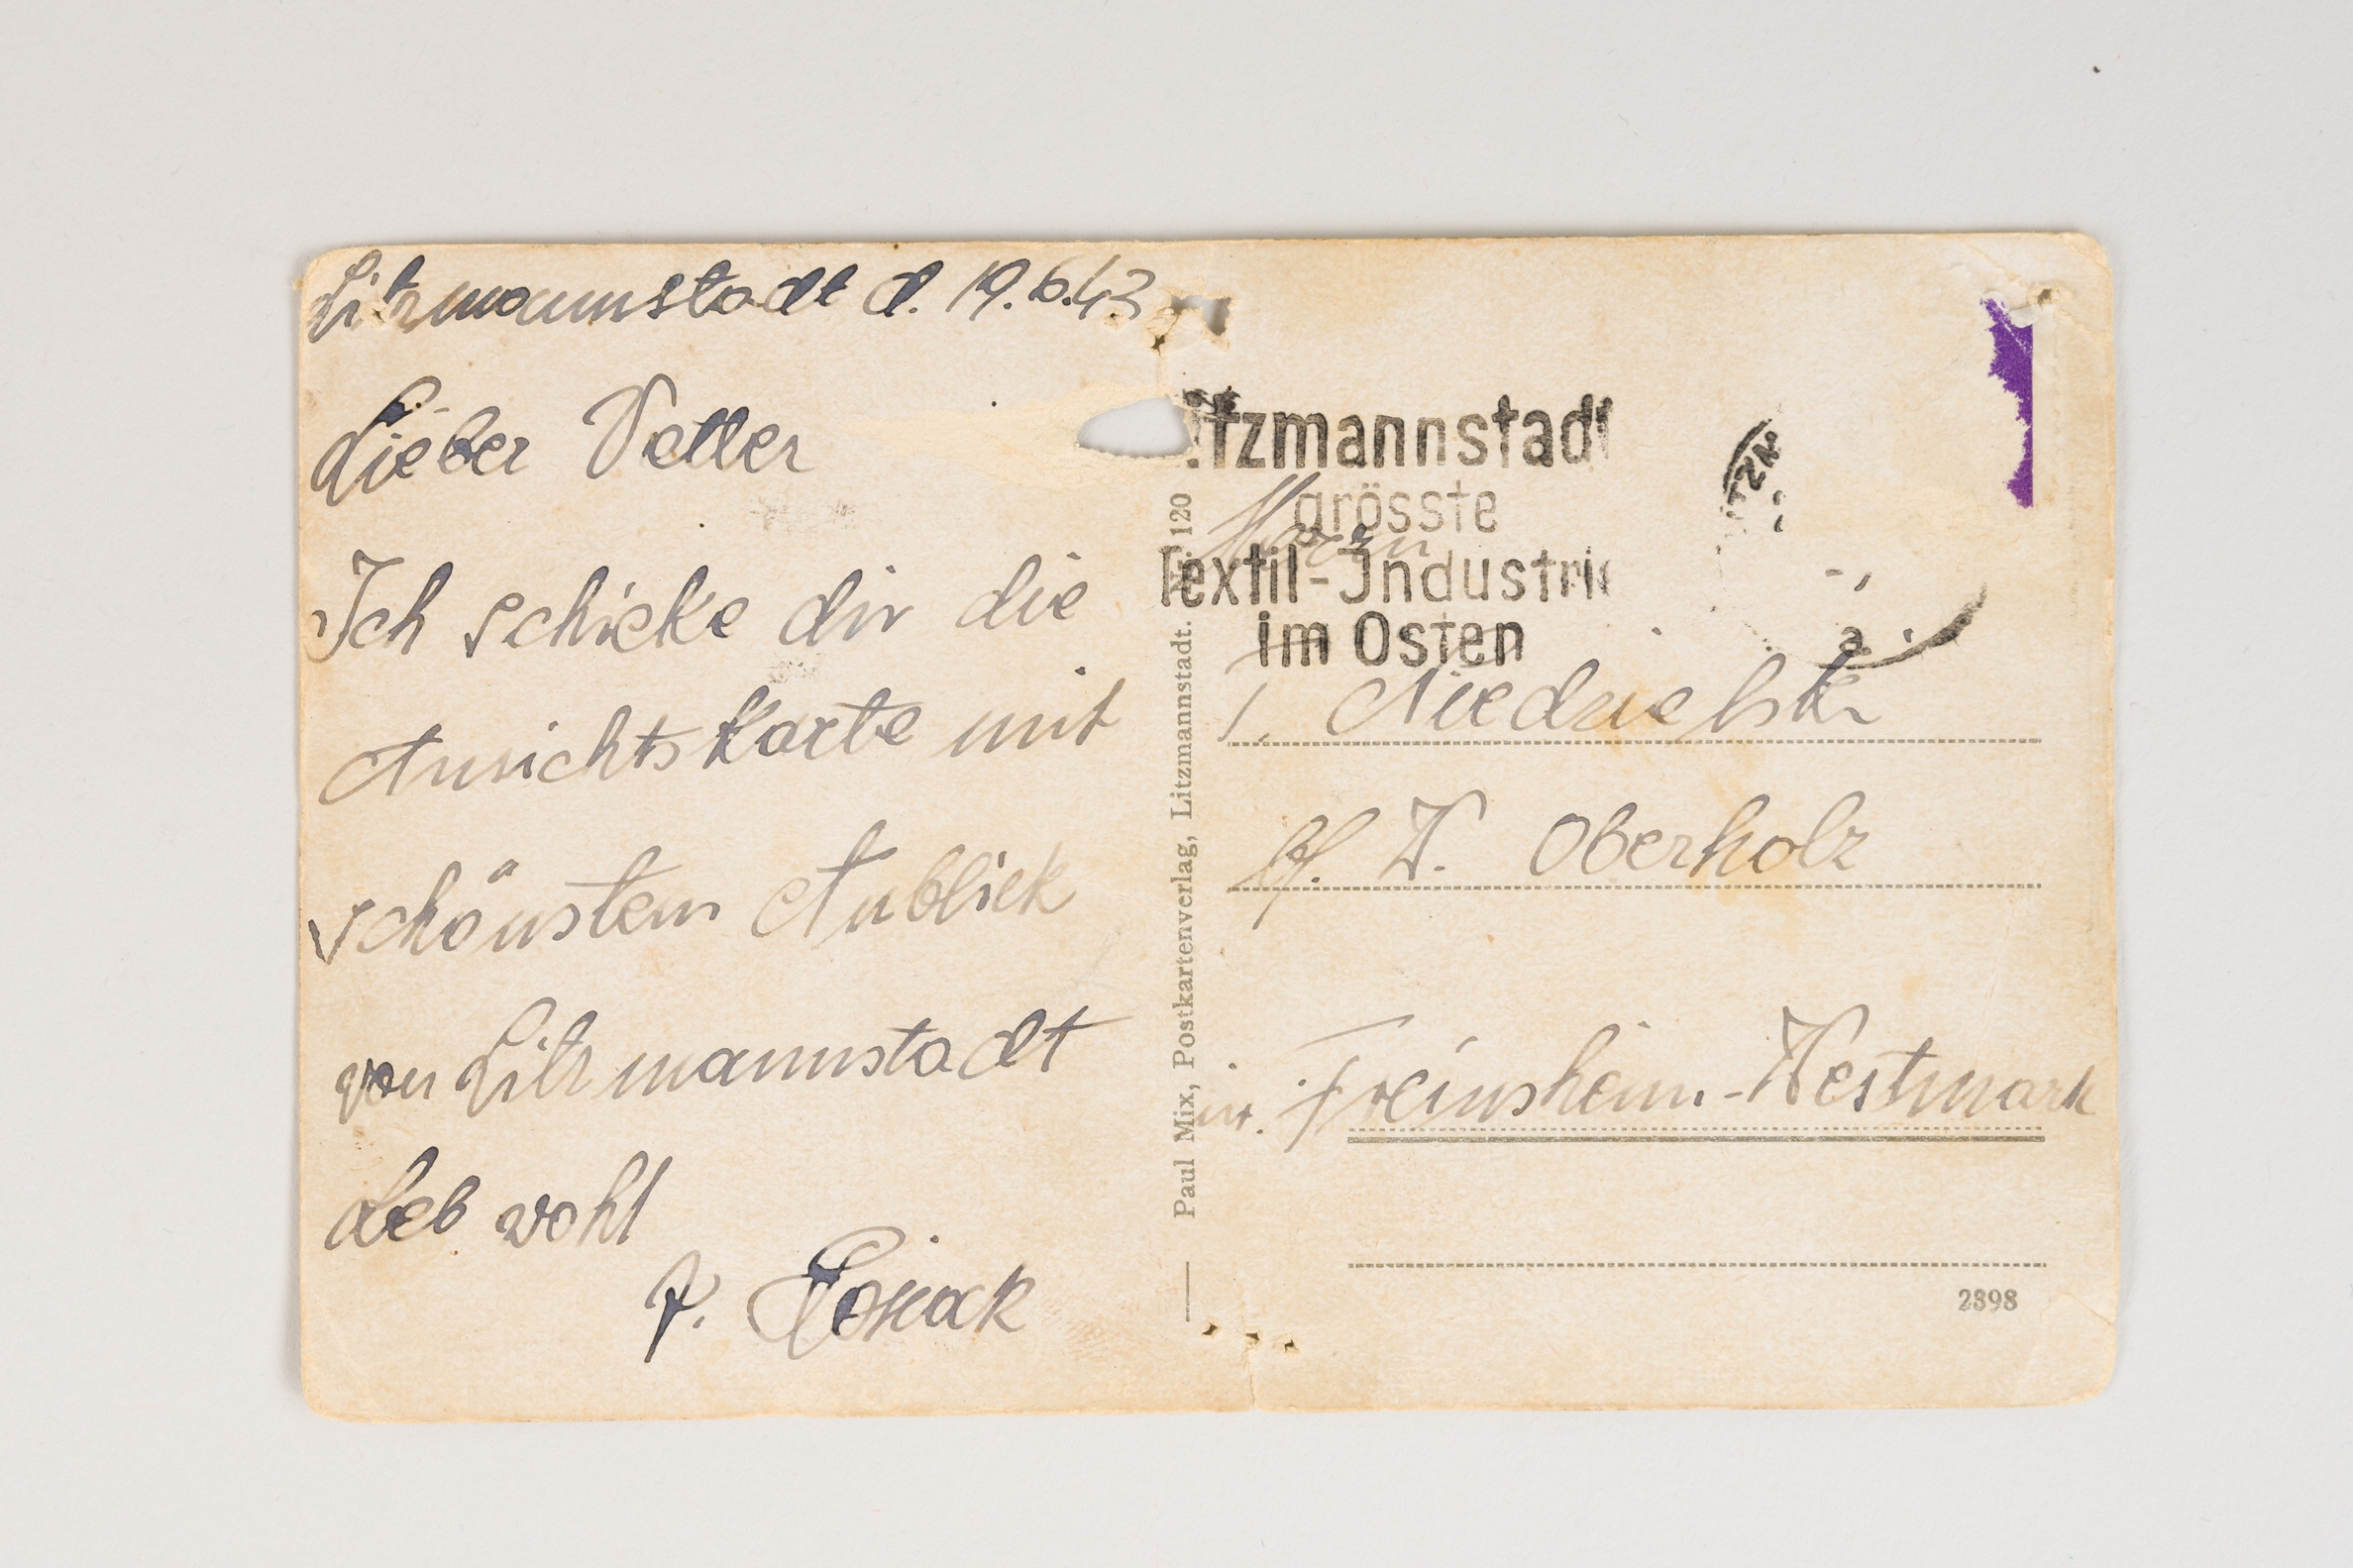 Litzmannstadt d. 19.6.43
Lieber Vetter
Ich schicke dir die
Ansichtskarte mit
schönsten Anblick
von Litzmannstadt
Leb wohl
Paul Mix, Postkartenverlag, Litzmannstadt. 120
itzmannstadt
grösste
Textil-Industrie
im Osten
TZM
a
W. Oberholz
in. Freinsheim-Westmark
2398